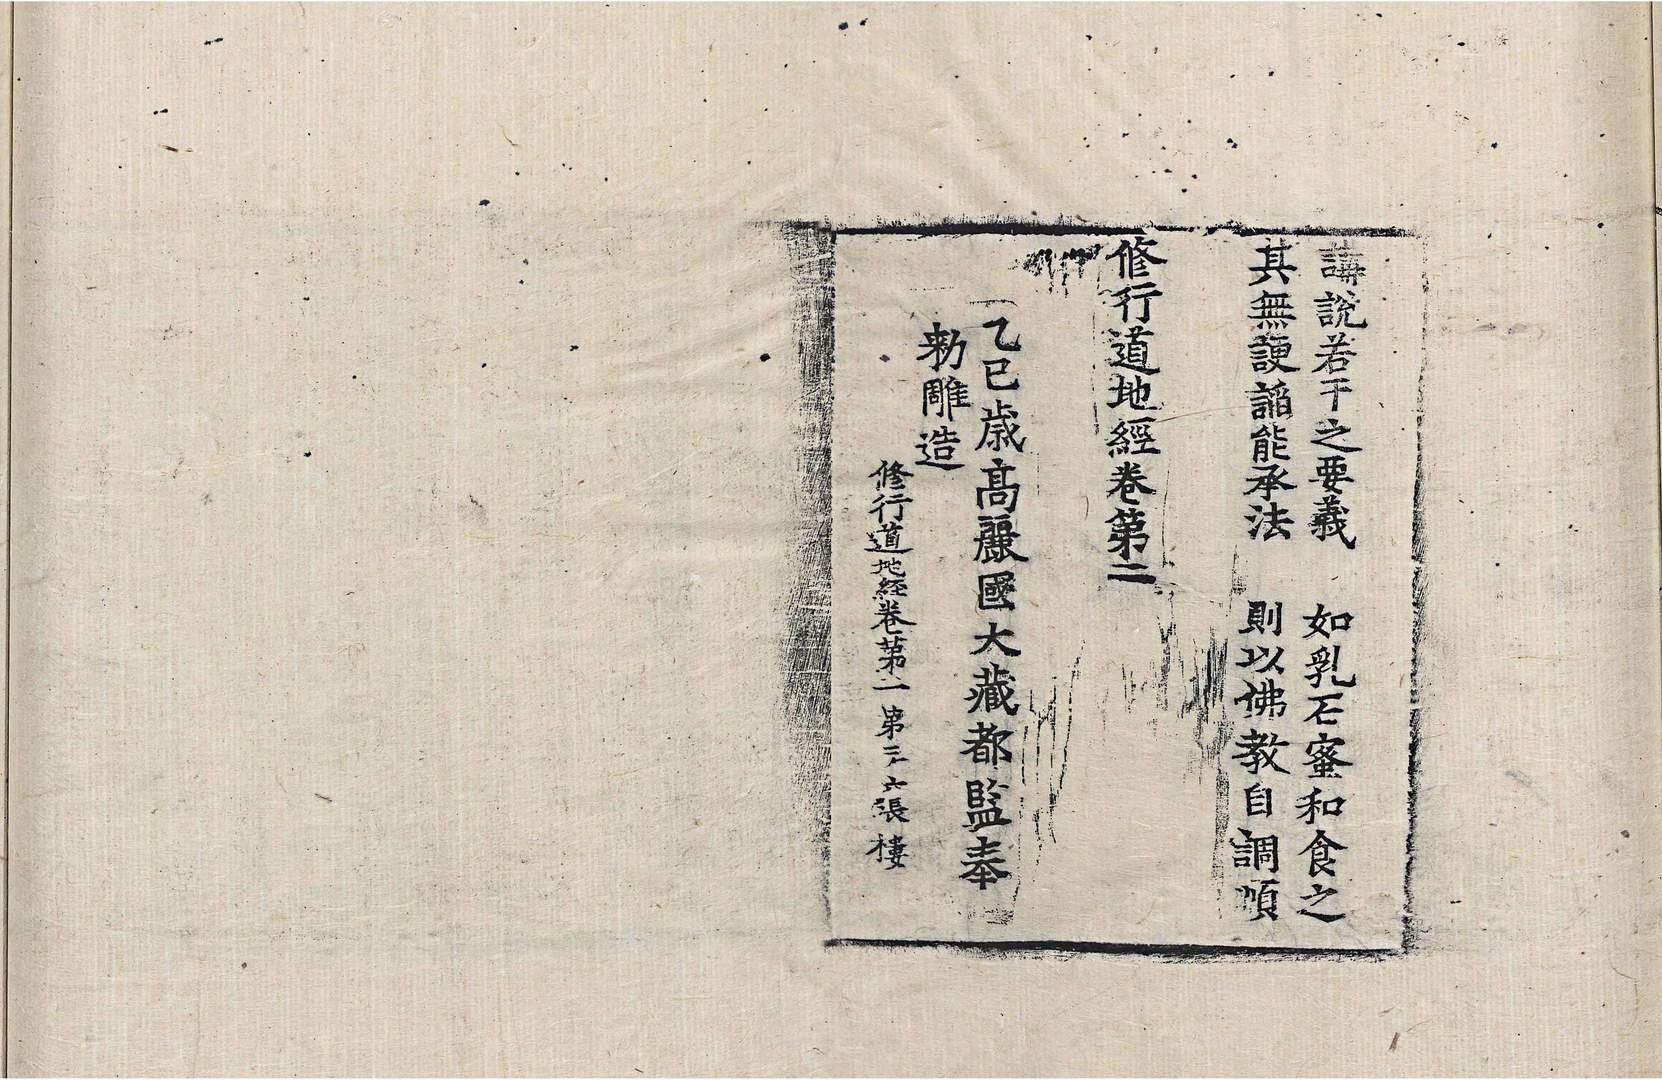 講說若干之要義　如乳石蜜和食之
其無諛謟能承法　則以佛教自調順
修行道地經卷第二
乙巳歲高麗國大藏都監奉
勅雕造
修行道地経卷第二　第三十六張　樓